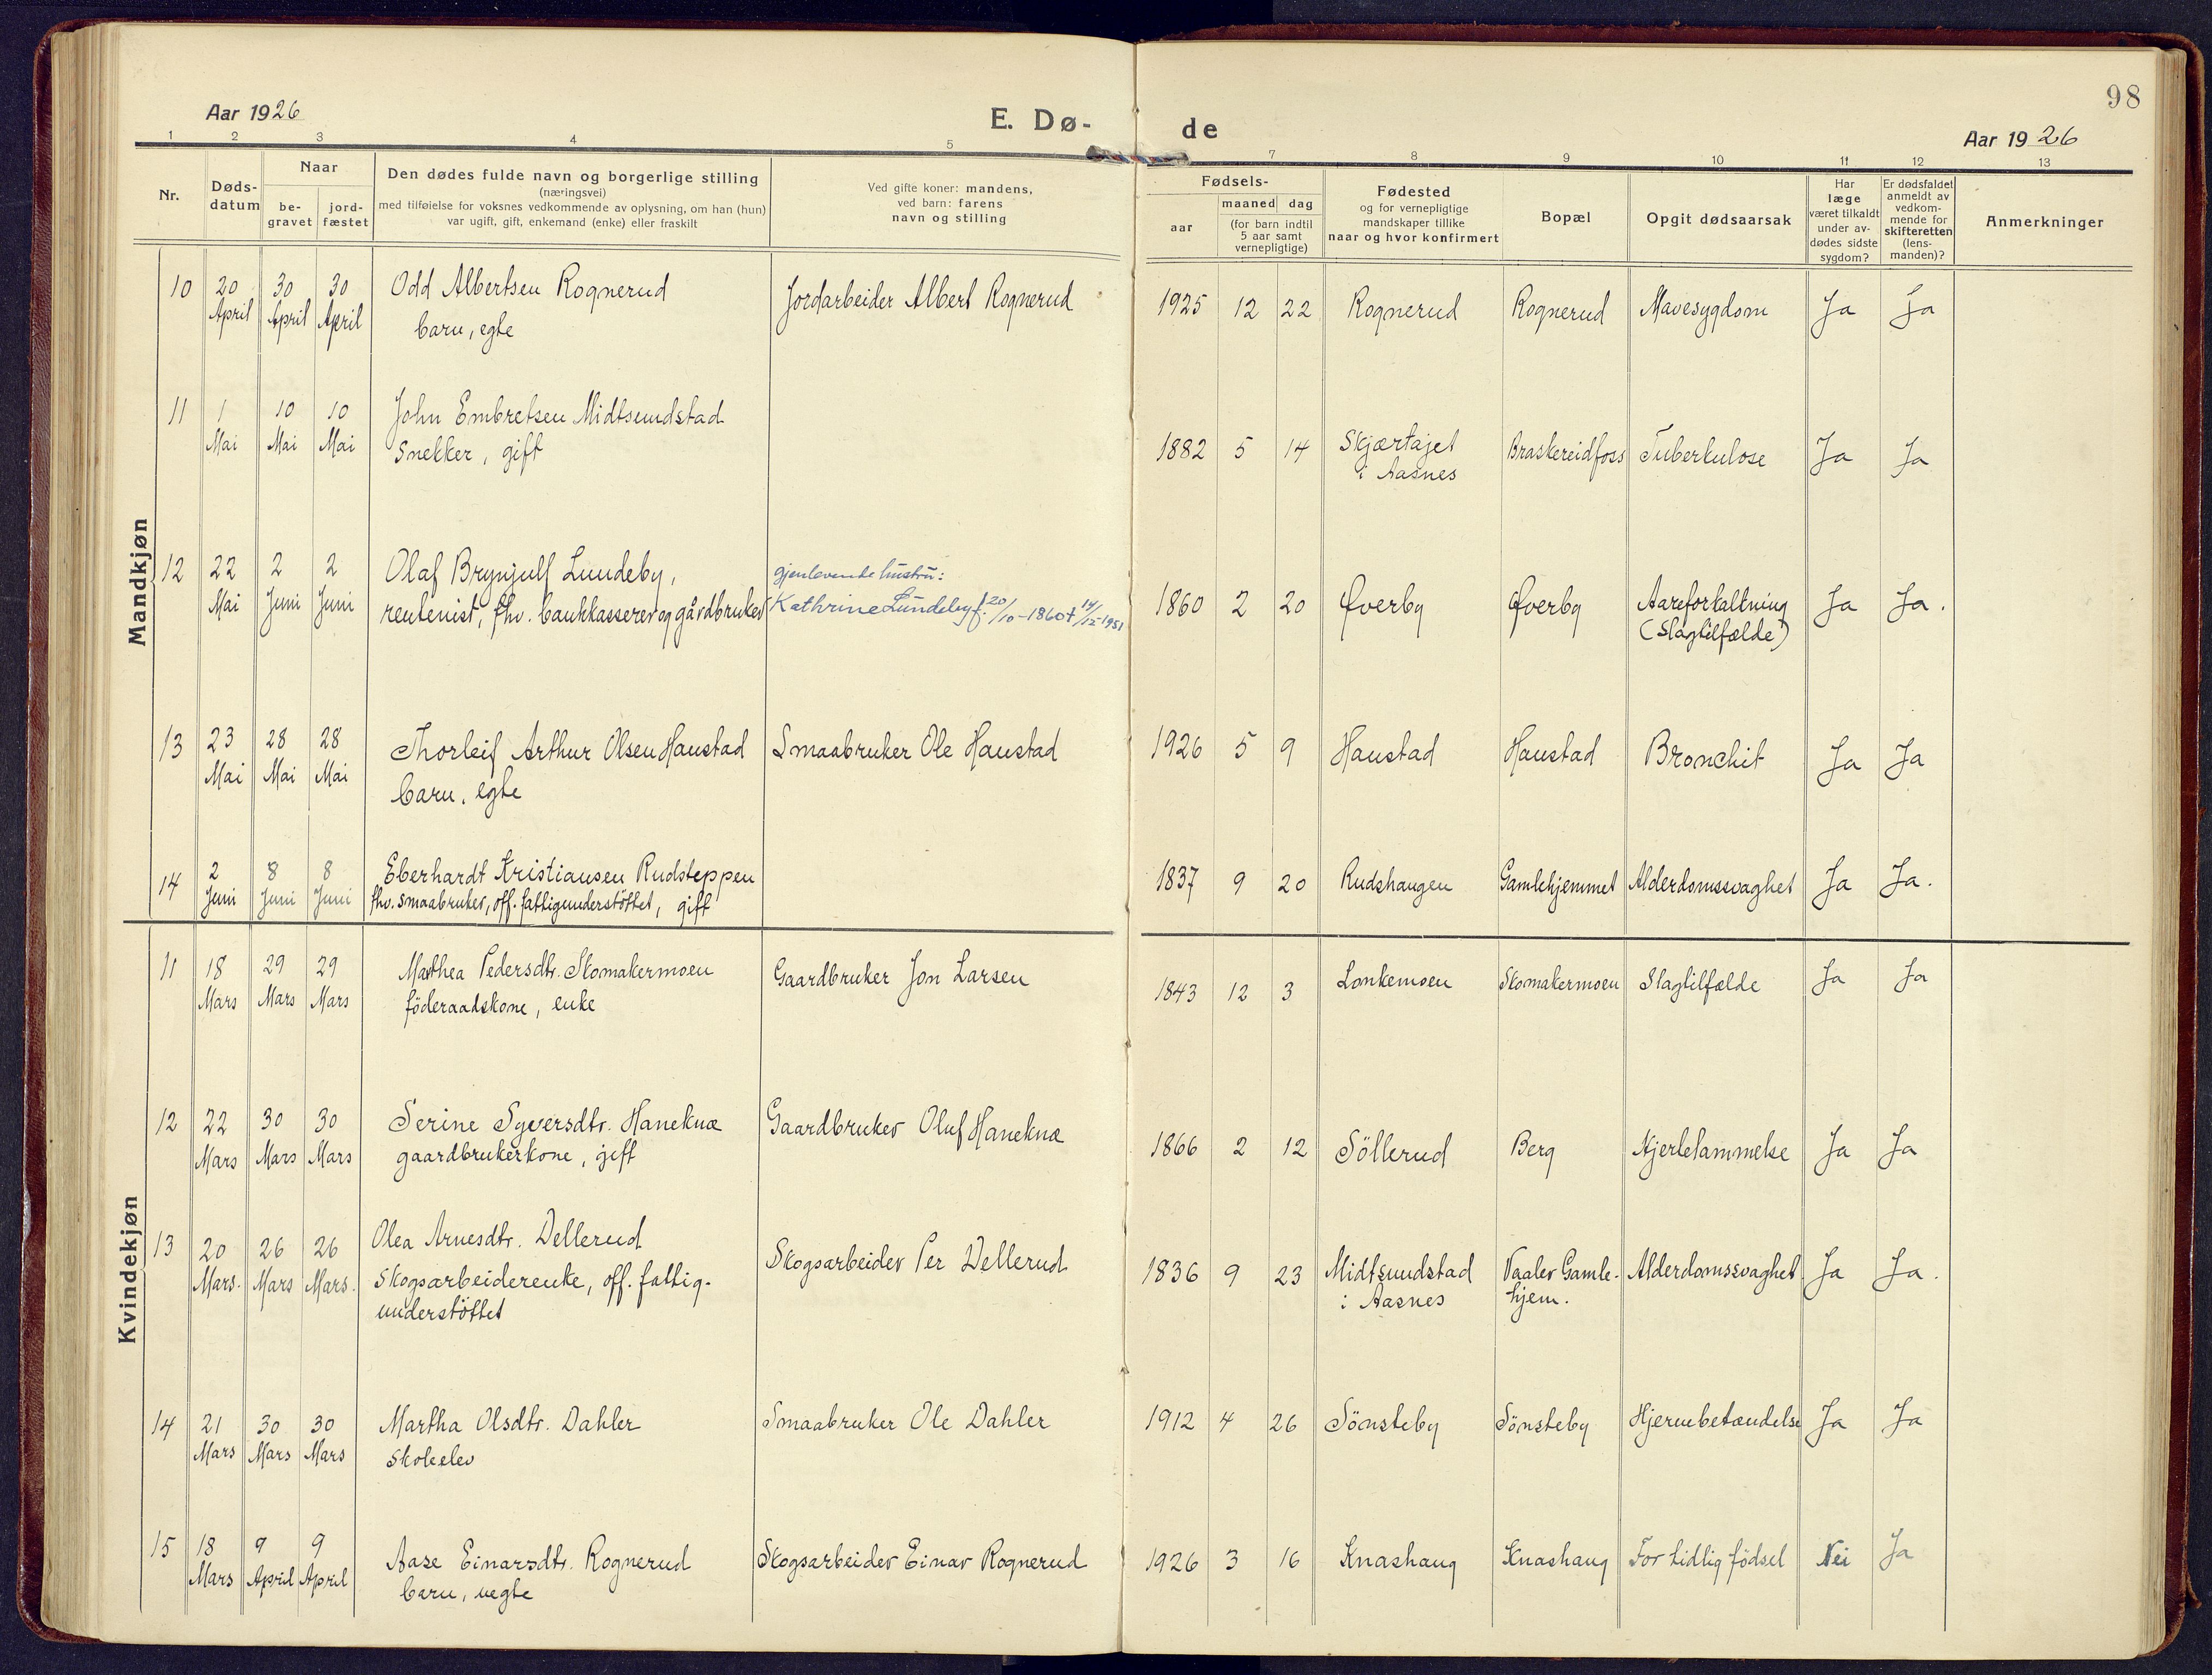 98
Aar 1926
E. Dø-
de
Aar 1926
1 2 3 4 5 7 8 9 10 11 12 13
Nr.
Døds-
datum
Naar
be-
gravet
jord-
fæstet
Den dødes fulde navn og borgerlige stilling
(næringsvei)
med tilføielse for voksnes vedkommende av oplysning, om han (hun)
var ugift, gift, enkemand (enke) eller fraskilt
Ved gifte koner: mandens,
ved barn: farens
navn og stilling
Fødsels-
aar
maaned dag
(for barn indtil
5 aar samt
vernepligtige)
Fødested
og for vernepligtige
mandskaper tillike
naar og hvor konfirmert
Bopæl
Opgit dødsaarsak
Har
læge
været tilkaldt
under av-
dødes sidste
sygdom?
Er dødsfaldet
anmeldt av
vedkom-
mende for
skifteretten
(lens-
manden)?
Anmerkninger
Mandkjøn
10 20 30 30 Odd Albertsen Rognerud Jordarbeider Albert Rognerud 1925 12 22 Rognerud Rognerud Mavesygdom Ja Ja
April April April barn, egte
11 1 10 10 John Embretsen Midtsundstad 1882 5 14 Skjærtajet Braskereidfoss Tuberkulose Ja Ja
Mai Mai Mai Snekker, gift i Aasnes
12 22 2 2 Olaf Brynjulf Lundeby, gjenlevende hustru: 1860 2 20 Øverby Øverby Aareforkaltning Ja Ja.
Mai Juni Juni rentenist, fhv. bankkasserer og gårdbruker Kathrine Lundeby f. 20/10-1860 † 14/12-1951 (Slagtilfælde)
13 23 28 28 Thorleif Arthur Olsen Haustad Smaabruker Ole Haustad 1926 5 9 Haustad Haustad Bronchit Ja Ja
Mai Mai Mai barn, egte
14 2 8 8 Eberhardt Kristiansen Rudsteppen 1837 9 20 Rudshaugen Gamlehjemmet Alderdomssvaghet Ja Ja.
Juni Juni Juni fhv. smaabruker, off. fattigunderstöttet, gift
Kvindekjøn
11 18 29 29 Mathea Pedersdtr. Skomakermoen Gaardbruker Jon Larsen 1843 12 3 Lonkemoen Skomakermoen Slagtilfælde Ja Ja
Mars Mars Mars föderaadskone, enke
12 22 30 30 Serine Syversdtr. Haneknæ Gaardbruker Oluf Haneknæ 1866 2 12 Söllerud Berg Hjertelammelse Ja Ja
Mars Mars Mars gaardbrukerkone, gift
13 20 26 26 Olea Arnesdtr. Dellerud Skogsarbeider Per Dellerud 1836 9 23 Midtsundstad Vaaler Gamle- Alderdomssvaghet Ja Ja.
Mars. Mars Mars. Skogsarbeiderenke, off. fattig- i Aasnes hjem.
understöttet
14 21 30 30 Martha Olsdtr. Dahler Smaabruker Ole Dahler 1912 4 26 Sönsteby Sönsteby Hjernebetændelse Ja Ja
Mars Mars Mars Skoleelev
15 18 9 9 Aase Einarsdtr. Rognerud Skogsarbeider Einar Rognerud 1926 3 16 Knashaug Knashaug For tidlig födsel Nei Ja
Mars April April barn, uegte